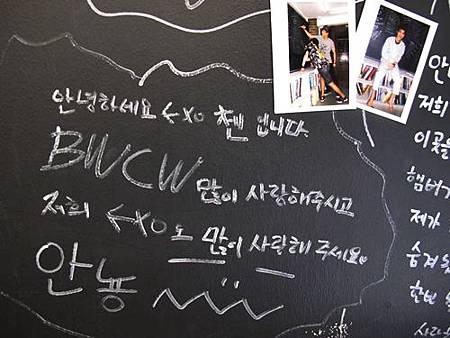 안녕하세요 EXO 첸 입니다.
BWCW 많이 사랑해주시고
저희 EXO도 많이 사랑해 주세요.
안뇽
저희
이곳을
햄버거
제가
한번